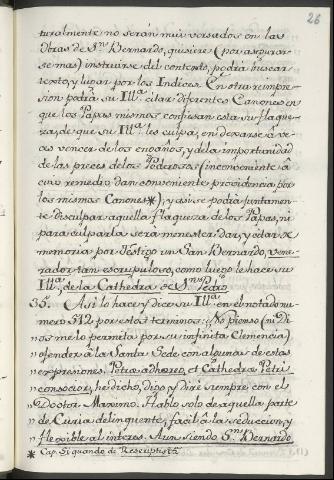 26
turalmente no serán mui versados en las
Obras de Sn. Bernardo, quisiere (por asegurar-
se mas) instruirse del contexto, podrá buscar
texto, y lugar por los Indices. En otra reimpre-
sion podrá su Illma. citar diferentes Canones en
que los Papas mismos confiesan esta su flaque-
za, de que su Illma. les culpa, en dexarse à ve-
ces vencer de los engaños, y de la importunidad
de las preces de los Poderosos (inconveniente à
cuio remedio dan conveniente providencia por
los mismos Canones *), y asi se podrá juntamen-
te disculpar aquella flaqueza de los Papas, ni
para culparla será menester dar, y citar se
memoria por Testigo un San Bernardo, vene-
rador tan escrupuloso, como luego le hace su
Illma., de la Cathedra de Sn. Pedro.
35. Asi lo hace y dice su Illma. en el notado nu-
mero 512 por estos terminos: No pienso (ni Di-
"os me lo permita por su infinita Clemencia)
"ofender à la Santa Sede con algunas de estas
"expresiones. Petro adhereo, et Cathedræ Petri
"consocior, he dicho, digo y diré siempre con el
"Doctor Maximo. Hablo solo de aquella parte
"de Curia delinquente, facil à la seduccion, y
"flexible al interes. Aun siendo Sn. Bernardo
* Cap. Si quando de Rescriptis